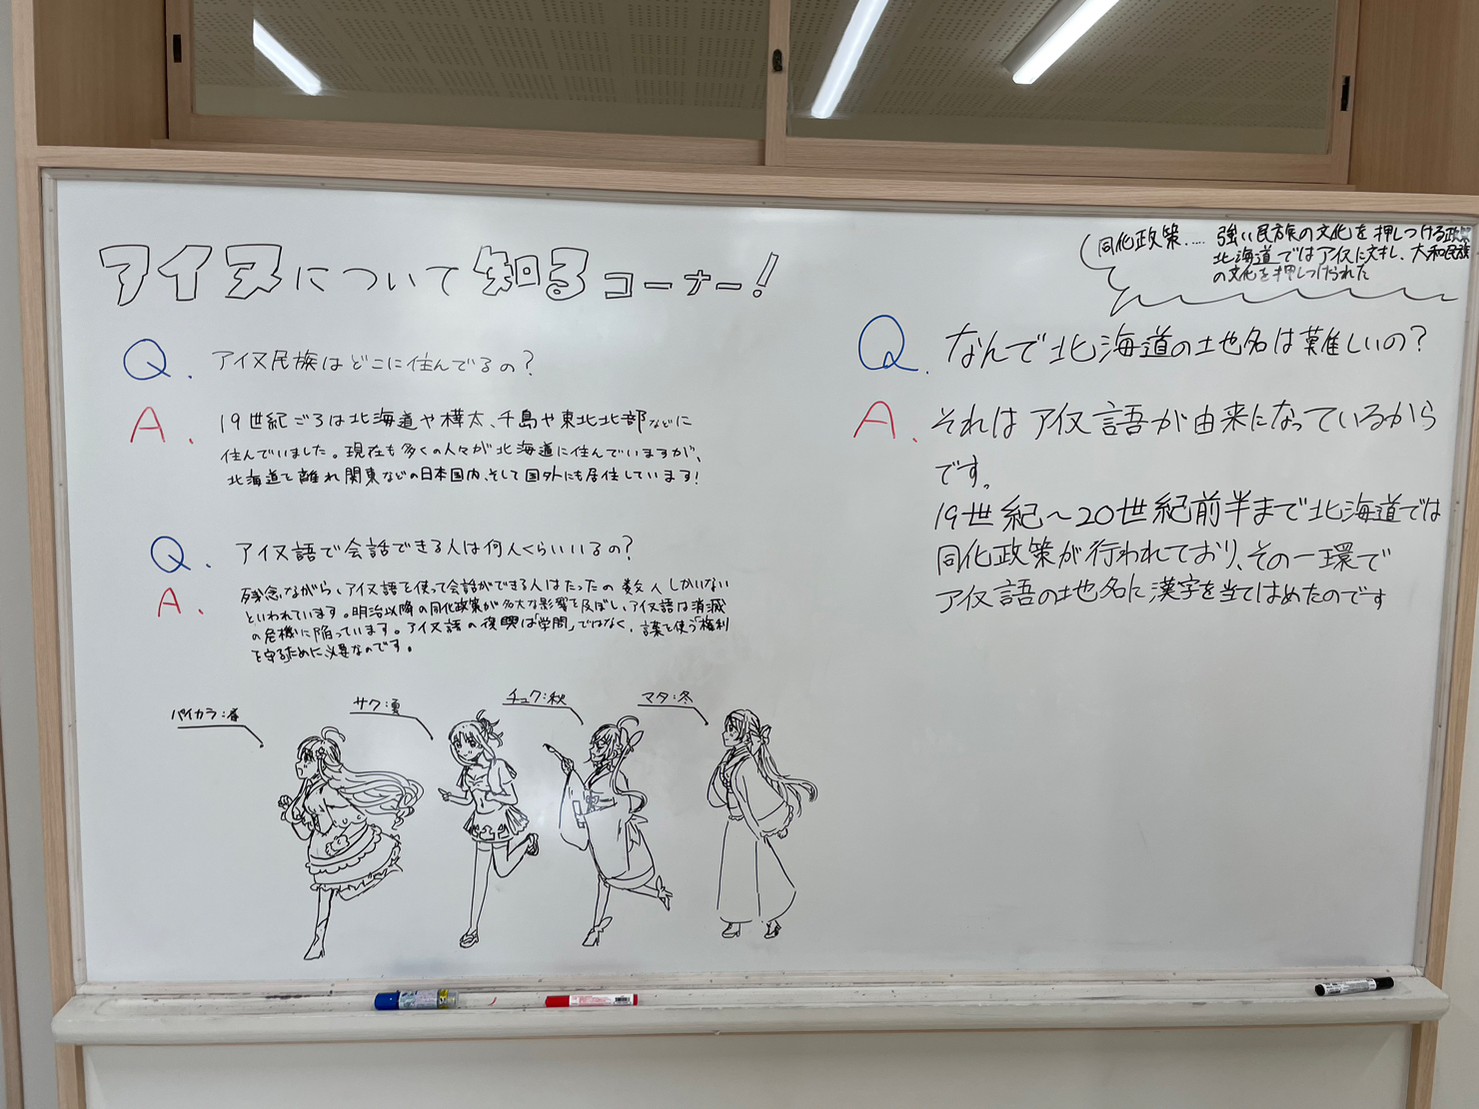 アイヌについて知るコーナー!
Q. アイヌ民族はどこに住んでるの?
A. 19世紀ごろは北海道や樺太、千島や東北北部などに
住んでいました。現在も多くの人々が北海道に住んでいますが、
北海道を離れ関東などの日本国内、そして国外にも居住しています!
Q. アイヌ語で会話できる人は何人くらいいるの?
A. 残念ながら、アイヌ語を使って会話ができる人はたったの数人しかいない
といわれています。明治以降の同化政策が多大な影響を及ぼし、アイヌ語は消滅
の危機に陥っています。アイヌ語の復興は「学問」ではなく、言葉を使う「権利」
を守るために必要なのです。
パイカラ:春
サク:夏
チュク:秋
マタ:冬
同化政策..... 強い民族の文化を押しつける政策
北海道ではアイヌに対し、大和民族
の文化を押しつけられた
Q. なんで北海道の土地名は難しいの?
A. それはアイヌ語が由来になっているから
です。
19世紀〜20世紀前半まで北海道では
同化政策が行われており、その一環で
アイヌ語の地名に漢字を当てはめたのです